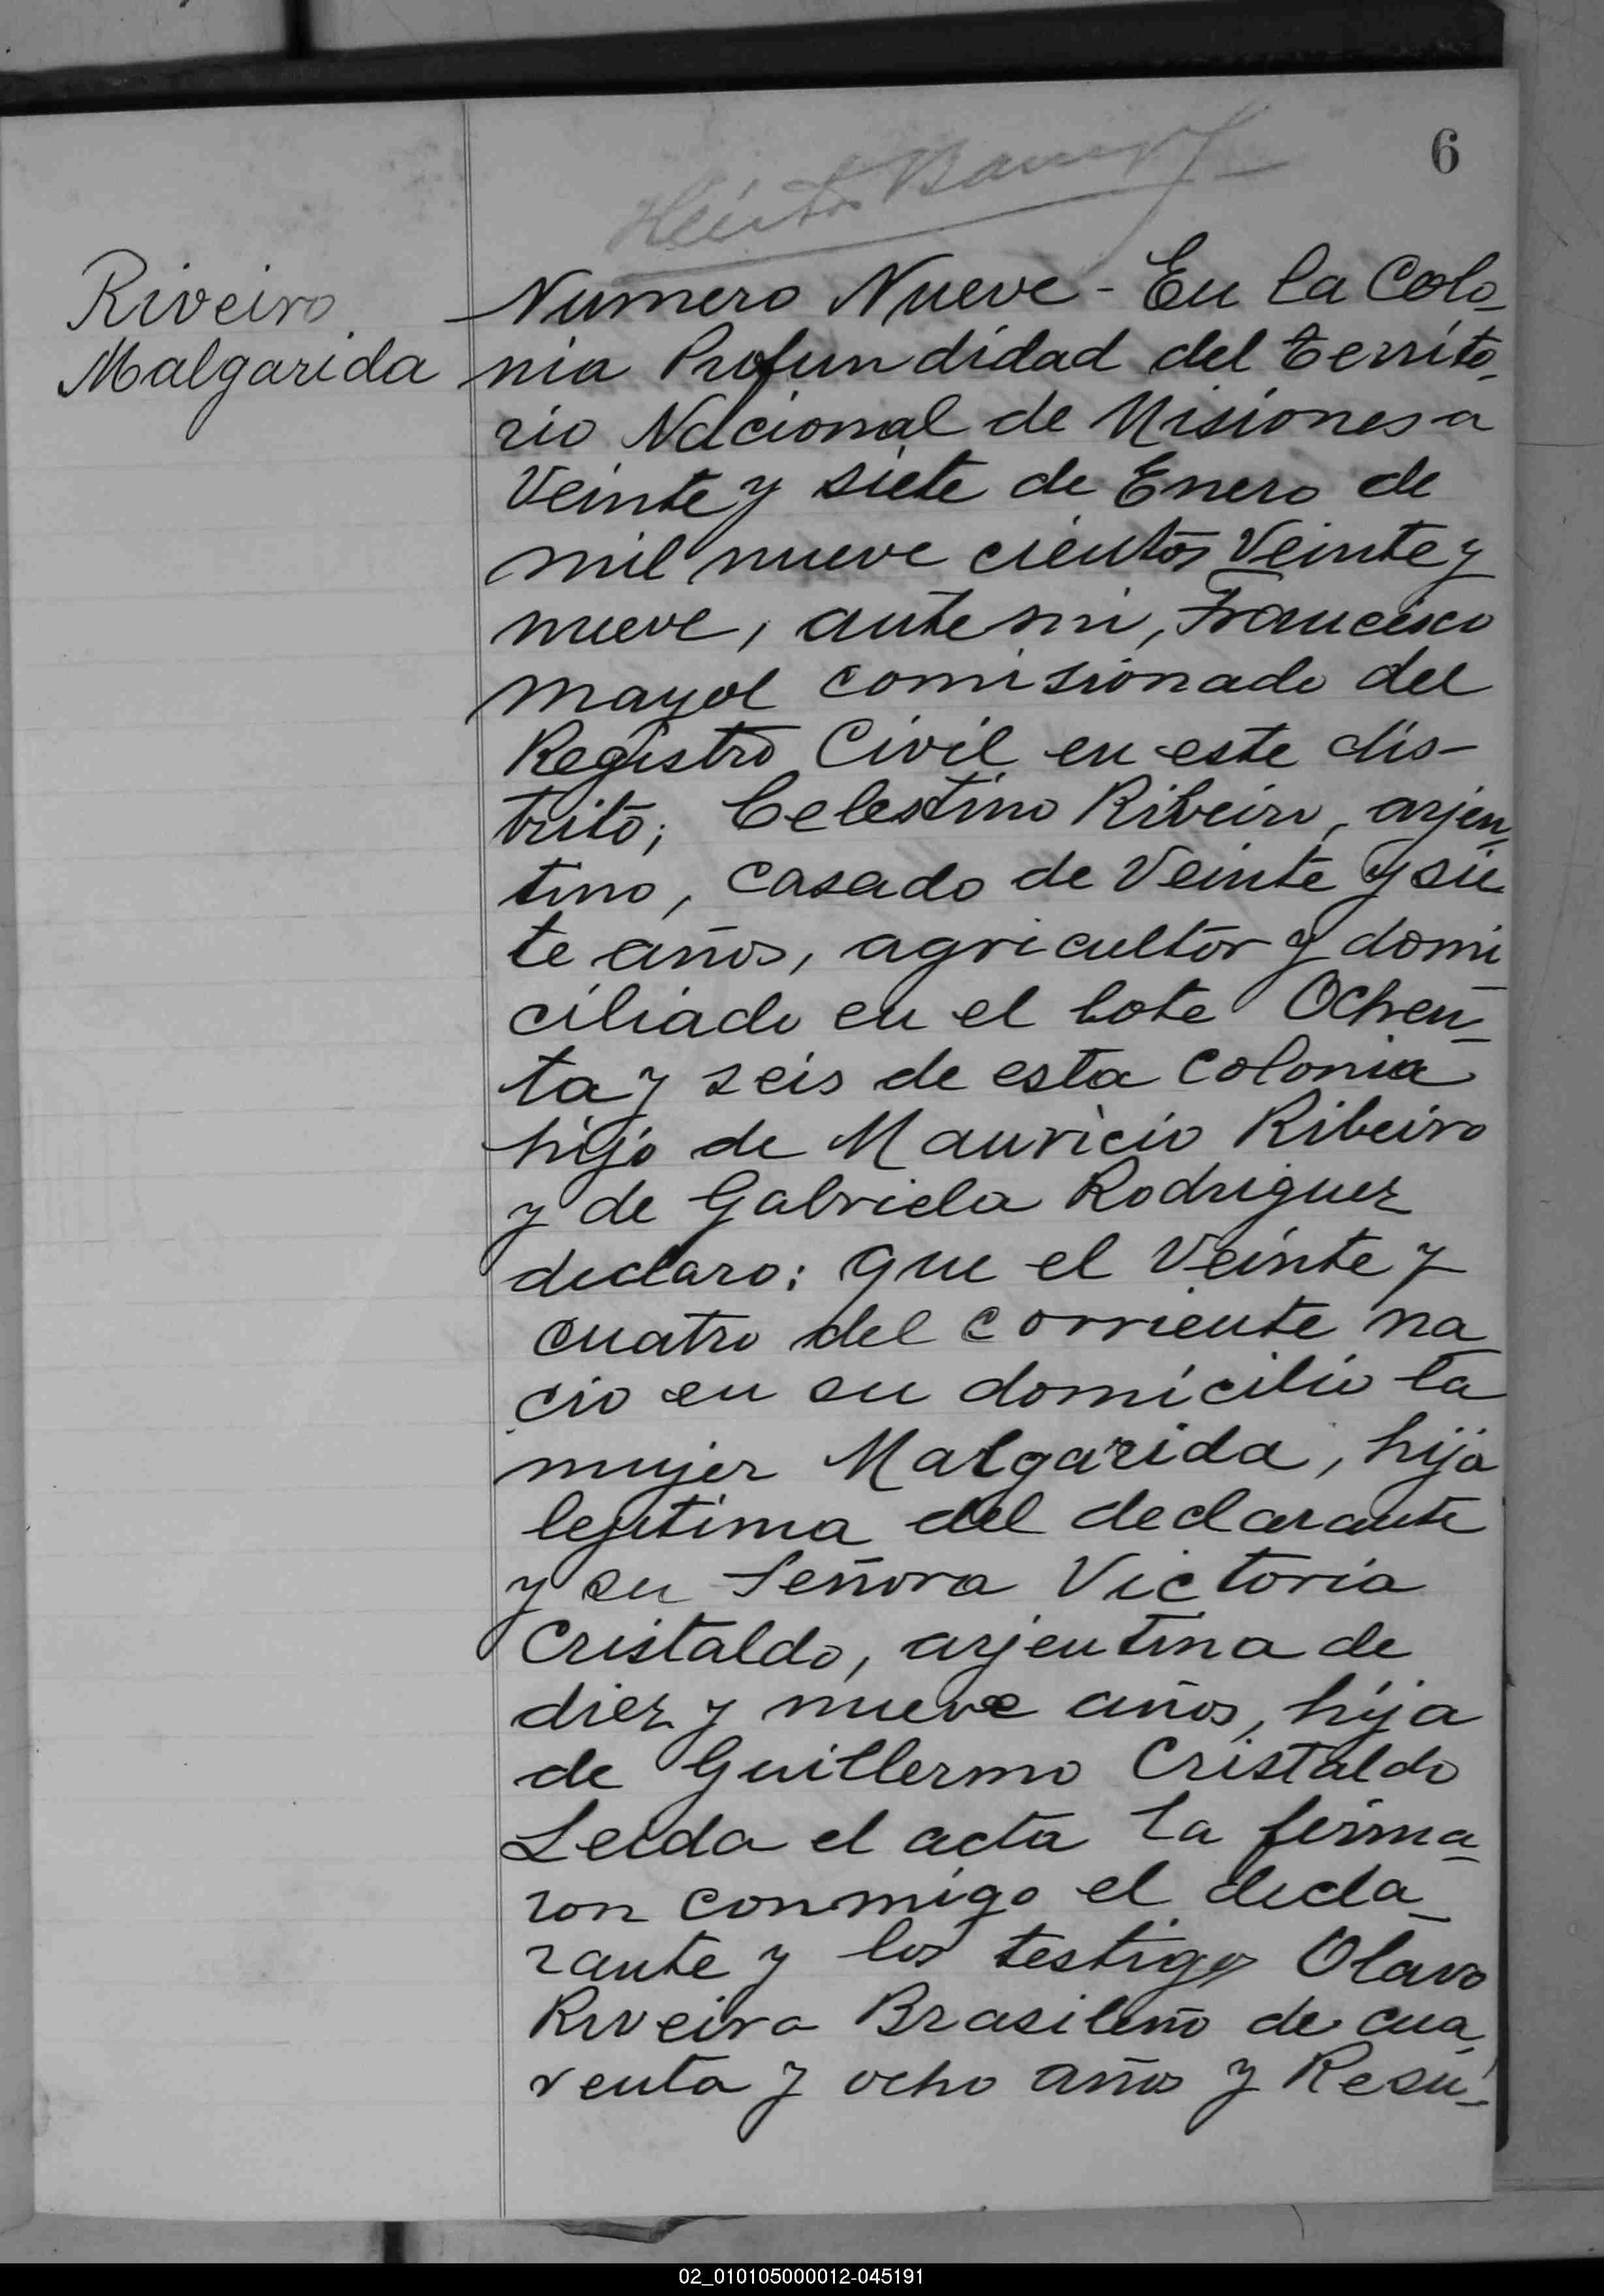 6
Riveiro
Malgarida
Numero Nueve - En la Colo-
nia Profundidad del territo-
rio Nacional de Misiones a
Veinte y siete de Enero de
mil nueve cientos Veinte y
nueve, ante mi, Francisco
Mayol comisionado del
Registro Civil en este dis-
trito; Celestino Ribeiro, arjen-
tino, casado de Veinte y sie
te años, agricultor y domi-
ciliado en el lote Ochen-
ta y seis de esta colonia
hijo de Mauricio Ribeiro
y de Gabriela Rodriguez
declaro: que el Veinte y
cuatro del corriente na-
cio en su domicilio la
mujer Malgarida, hija
legitima del declarante
y su Señora Victoria
Cristaldo, arjentina de
diez y nueve años, hija
de Guillermo Cristaldo
Leida el acta la firma-
ron conmigo el decla-
rante y los testigos Olavo
Riveira Brasileño de cua-
renta y ocho años y Resu-
02_010105000012-045191